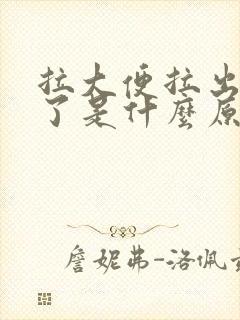 拉大便拉出
了是什麼原
詹妮弗-洛佩